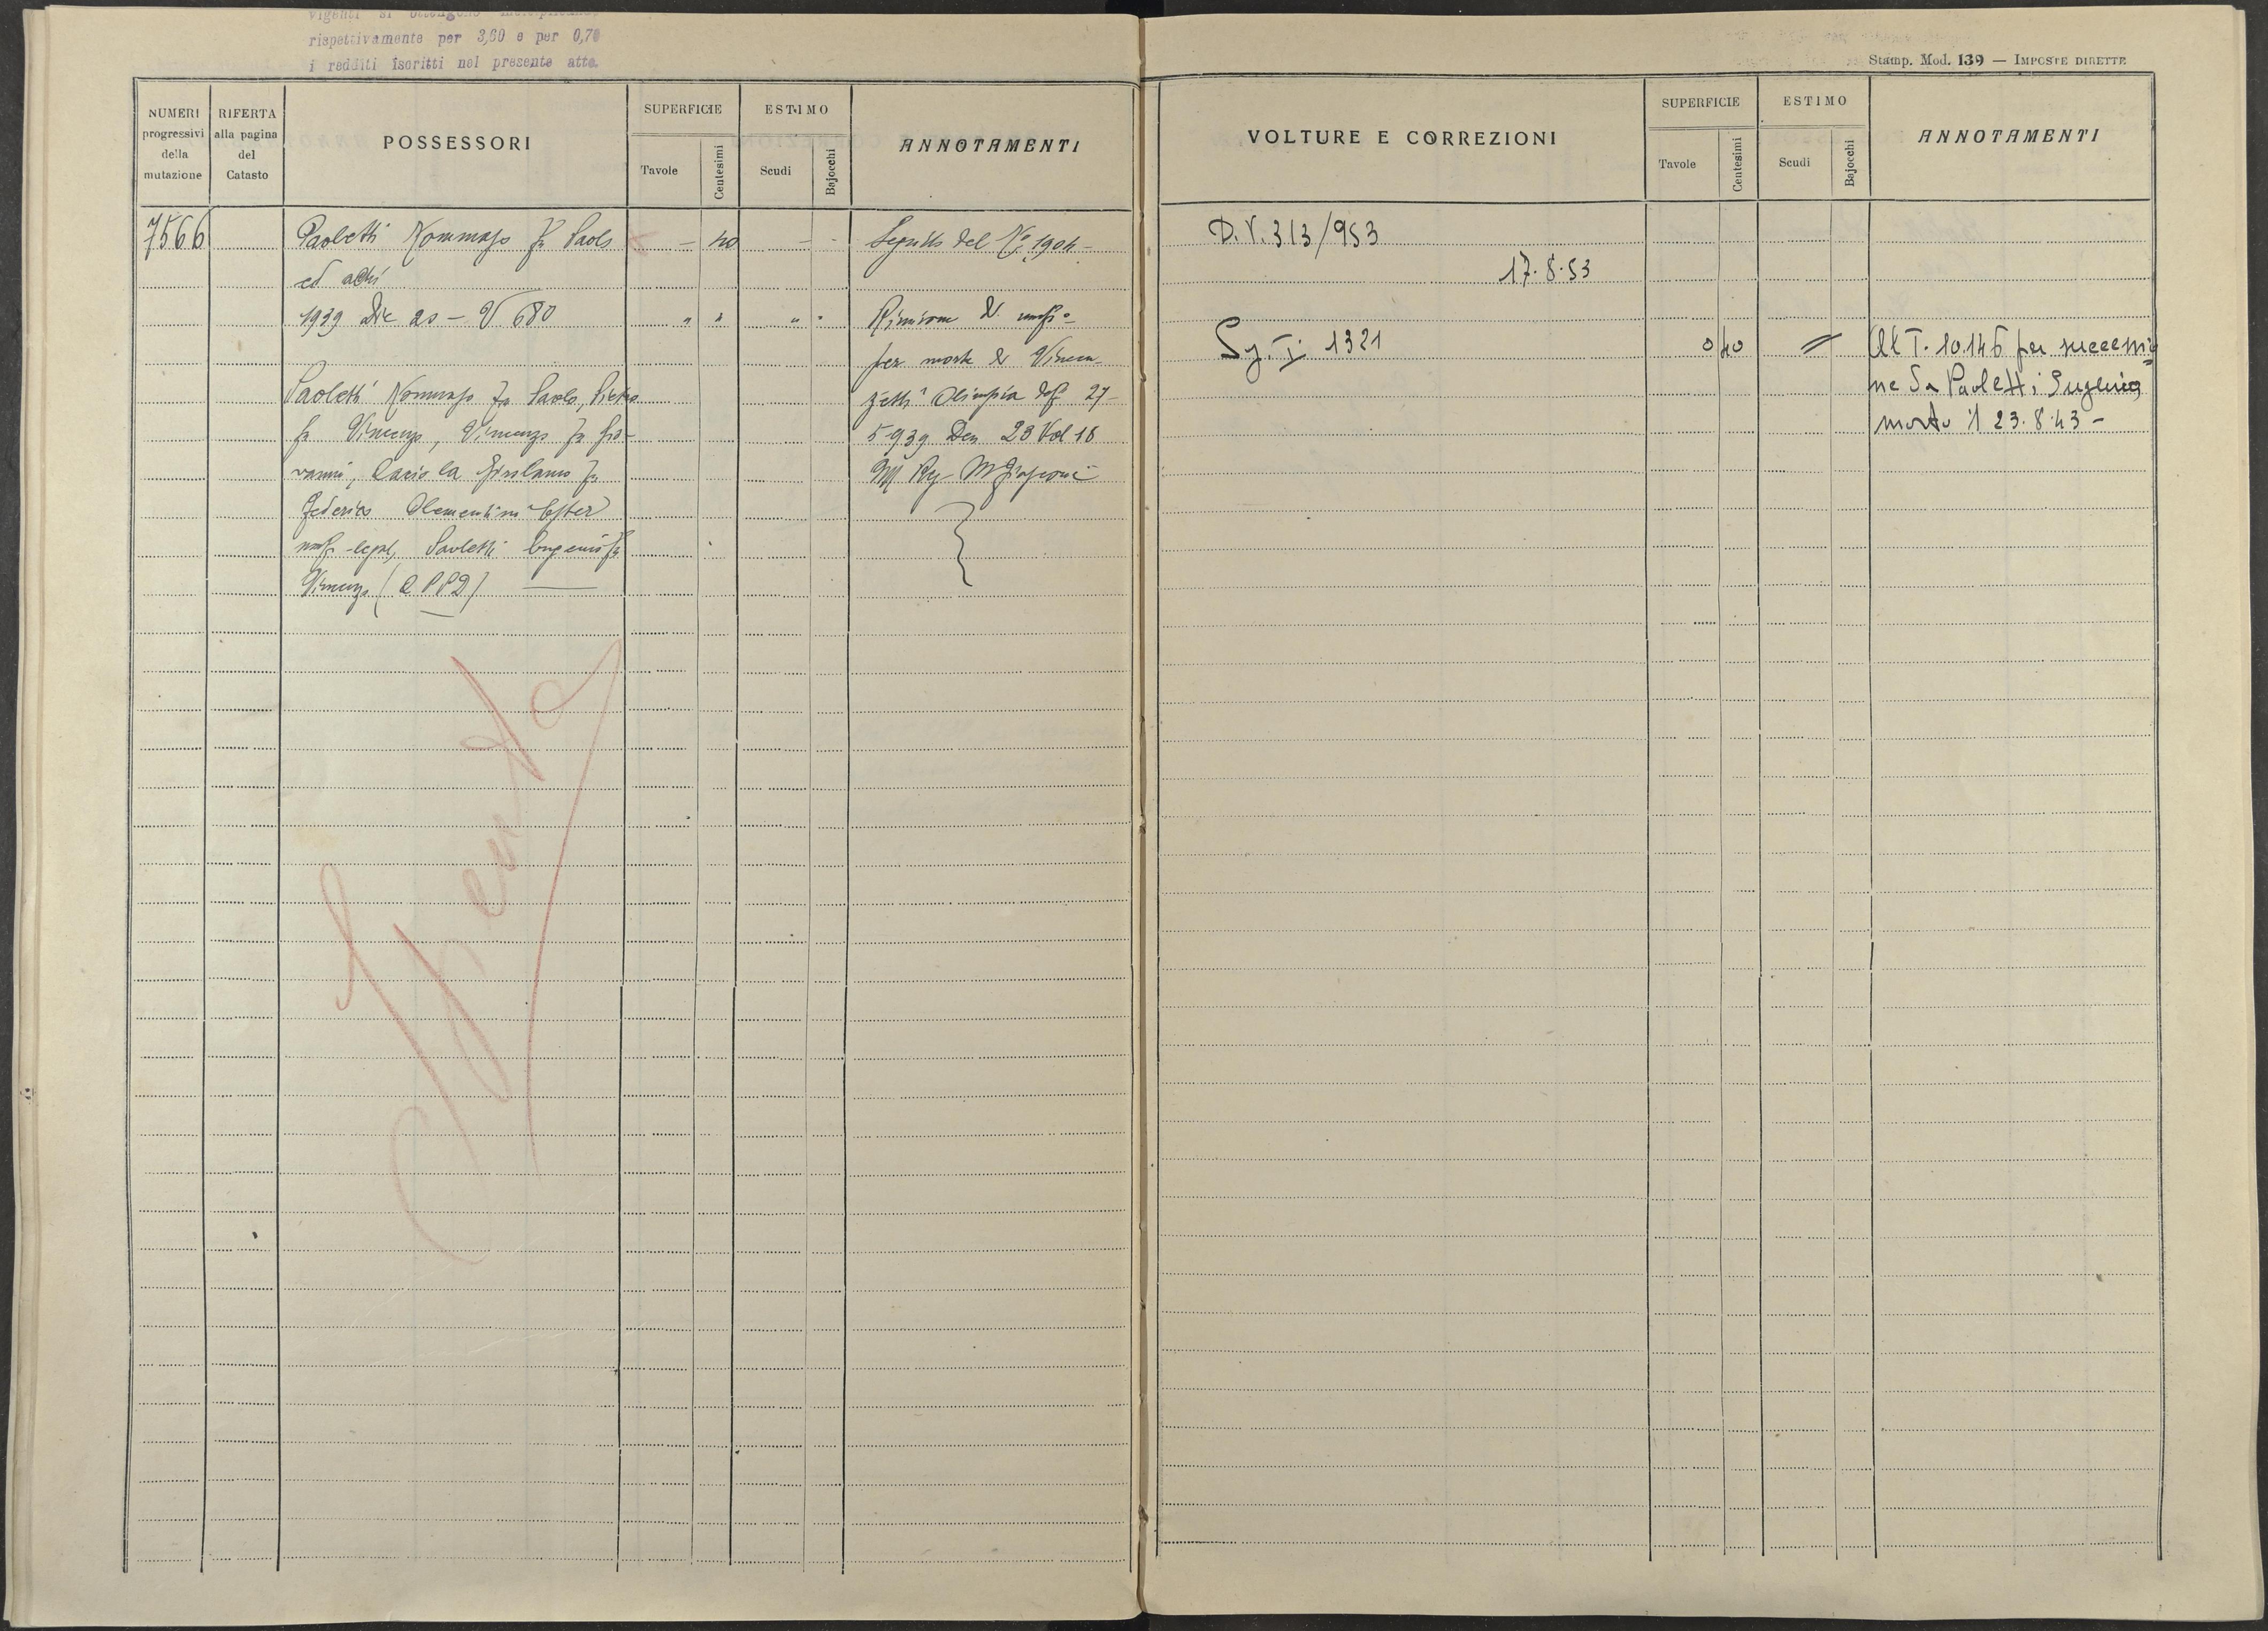 rispettivamente per 3,60 e per 0,70
i redditi iscritti nel presente atto.
NUMERI progressivi della mutazione
RIFERTA alla pagina del Catasto
POSSESSORI
SUPERFICIE
Tavole
Centesimi
ESTIMO
Scudi
Bajocchi
ANNOTAMENTI
7566
Paoletti Tommaso fu Paolo
ed altri
1939 Dic 20 - V 680
Paoletti Tommaso fu Paolo, Pietro
fu Vincenzo, Vincenzo fu Gio-
vanni, Girolamo fu
Federico Clementini Ester
usuf. legale, Paoletti Eugenio fu
Vincenzo
- 40 - -
Seguito del N° 1904 -
Riunione di usuf°
per morte di Vincen-
zetti Olimpia 27-
5-939 Den 28 Vol 18
Spenta
Stamp. Mod. 139 — IMPOSTE DIRETTE
VOLTURE E CORREZIONI
SUPERFICIE
Tavole
Centesimi
ESTIMO
Scudi
Bajocchi
ANNOTAMENTI
D.V. 313/953
17.8.53
1321
0 40 =
Al T. 10146 per successio
ne da Paoletti Eugenio
morto il 23.8.43 -